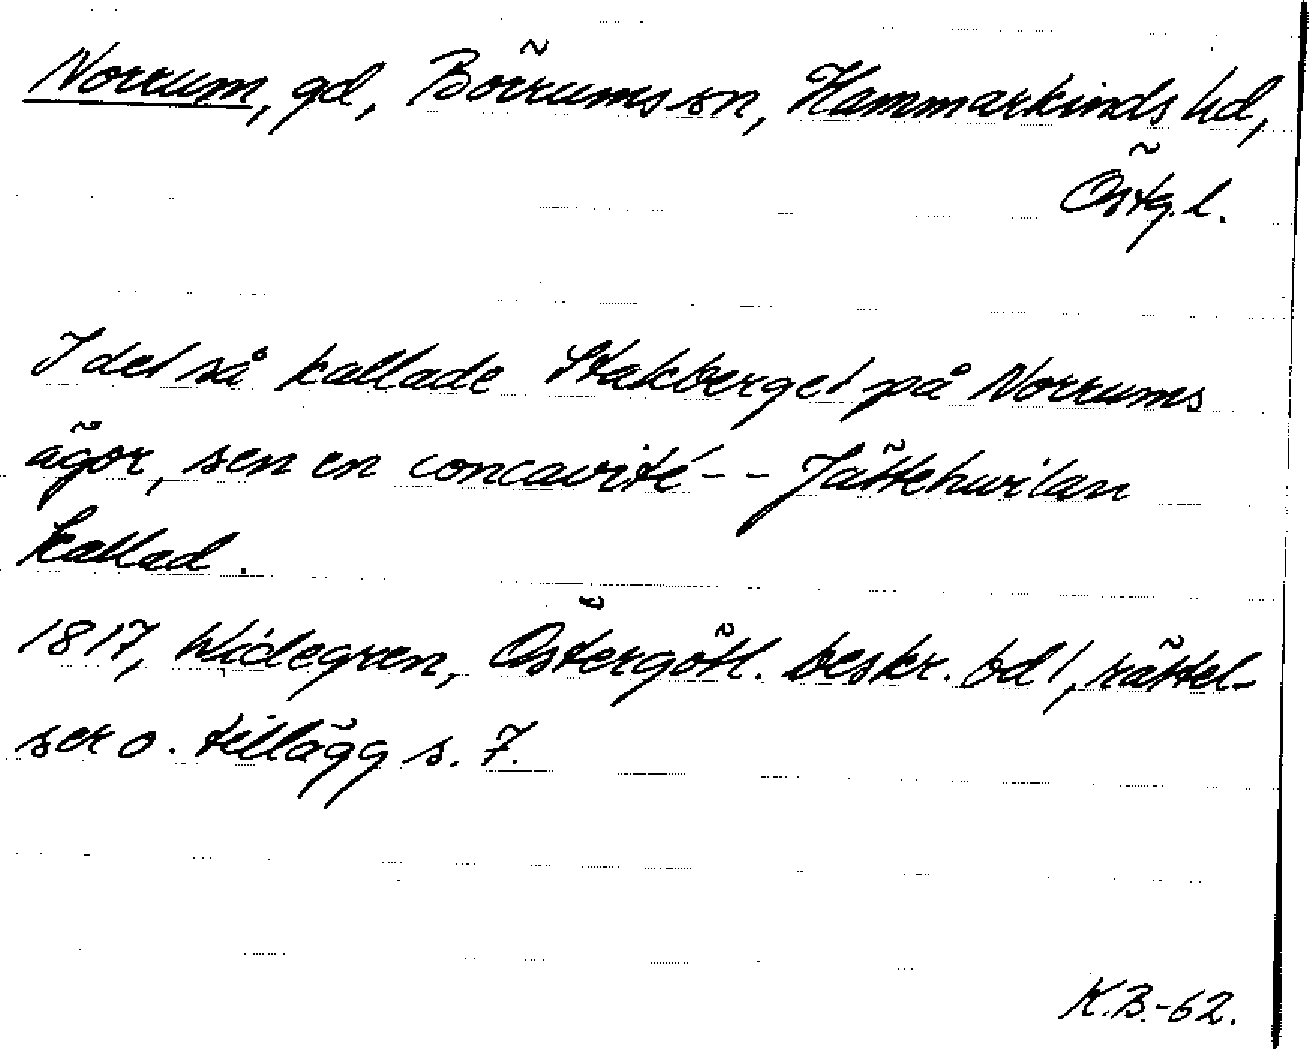 Norrum, gd, Börrums sn, Hammarkinds hd,
Östg. l.
I det så kallade Stekberget på Norrums
ägor, sen en concavité - - Jättehvilan
kallad.
1817, Widegren, Östergötl. beskr. bd 1, rättel-
ser o. tillägg s. 7.
K.B.-62.